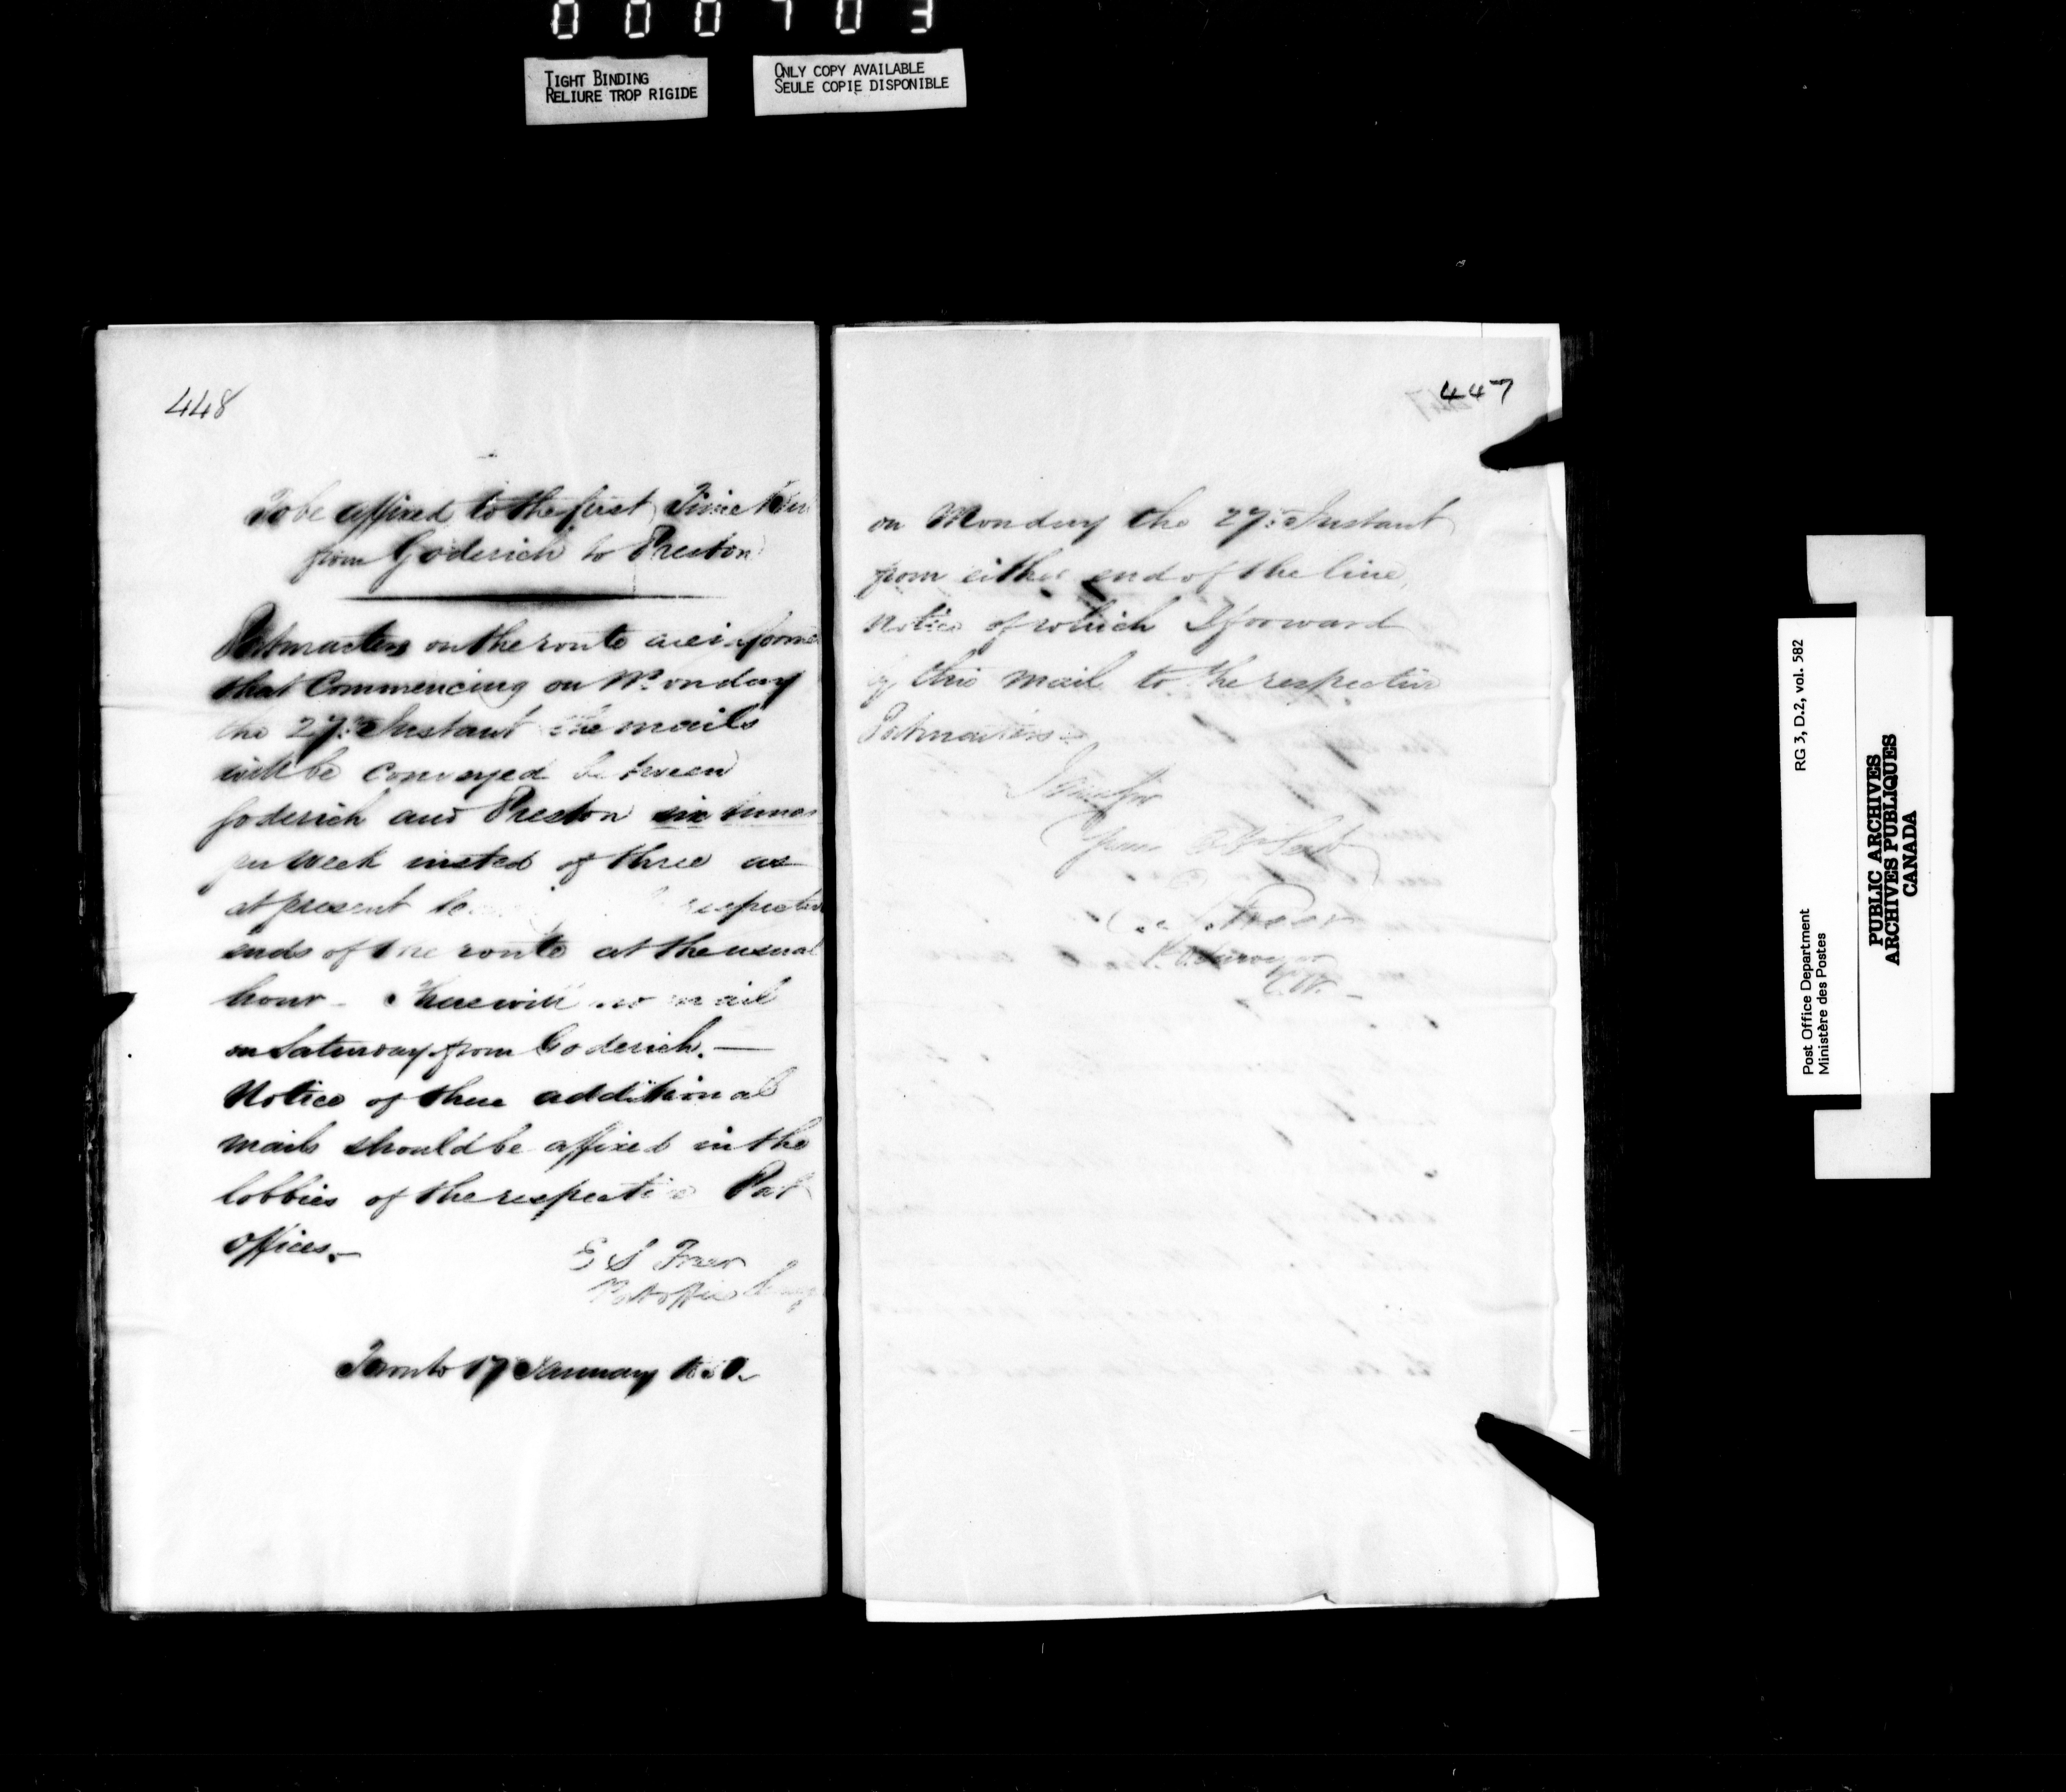 000703
TIGHT BINDING
RELIURE TROP RIGIDE
ONLY COPY AVAILABLE
SEULE COPIE DISPONIBLE
448
To be affixed to the first Time Bill
from Goderich to Preston
Postmasters on the route are informed
that Commencing on Monday
the 27th Instant the mails
will be conveyed between
Goderich and Preston six times
per week insted of three as
at present respective
ends of the route at the usual
hour - There will no mail
on Saturday from Goderich. —
Notice of these additional
mails should be affixed in the
lobbies of the respective Post
Offices. —
E S Freer
Post office
Toronto 17 January
447
on Monday the 27th Instant
from either end of the line,
Notice of which I forward
by this mail to the respective
Postmasters -
I am Sir
Your Ob Servt
E. S. Freer
P. O. Surveyor
C.W. -
Post Office Department
Ministère des Postes
RG 3, D.2, vol. 582
PUBLIC ARCHIVES
ARCHIVES PUBLIQUES
CANADA